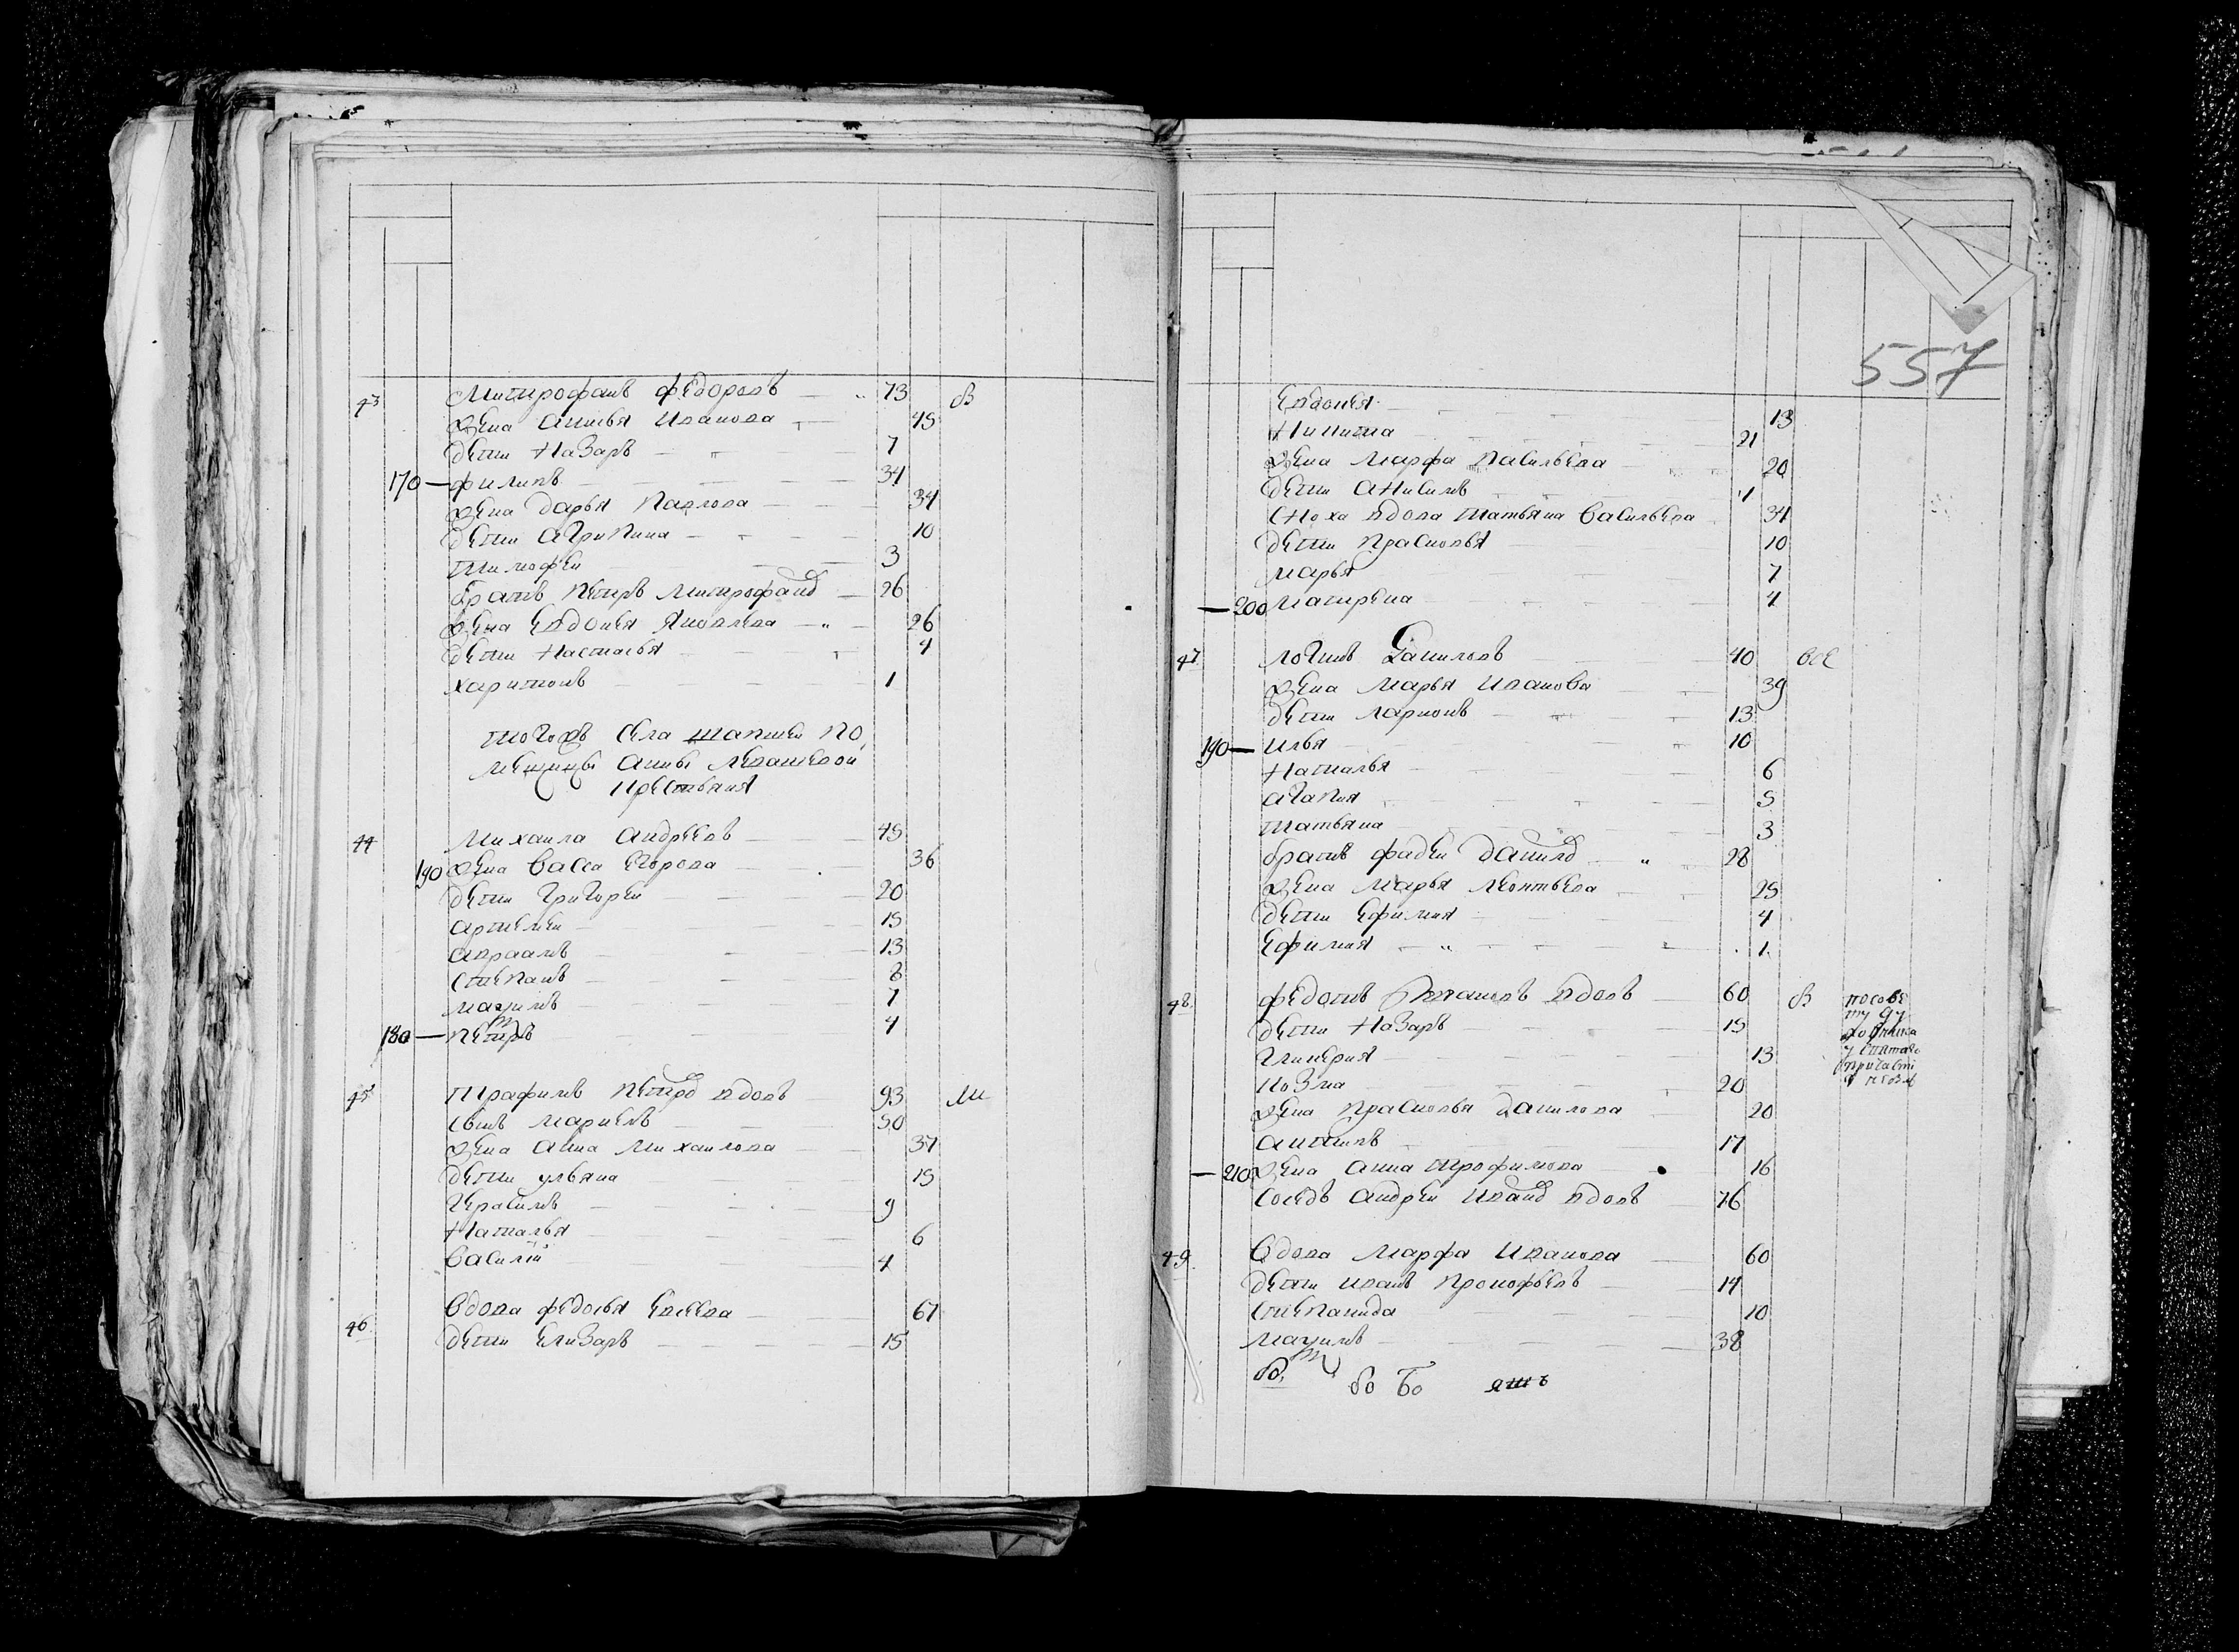 43 Митрофанъ Федоровъ 73 В
жена Анисья Иванова 45
дети Назаръ 7
170 — Филипъ 34
жена Дарья Павлова 34
дети Агрипина 10
Тимофеи 3
братъ Петръ Митрофанов 26
жена Евдокея Яковлева 26
дети Настасья 4
Харитонъ 1
тогожъ села по
мещицы Анны
крестьяня
44 Михаила Андреевъ 45
190 жена Васса Егорова 36
дети Григореи 20
Артемеи 15
Авраамъ 13
Степанъ 8
7
180 — Петръ 4
45 Трафимъ Петров вдовъ 93
сынъ 50
жена Анна Михаилова 37
дети Ульяна 15
Герасимъ 9
Наталья 6
Василїй 4
46 Вдова Федосья Евсеева 67
дети Елизаръ 15
557
Евдокея 13
Никита 21
жена Марфа Васильева 20
дети Анисимъ 4
сноха вдова Татьяна Васильева 34
дети Прасковья 10
Марья 7
— 200 Матрена 4
47 Логинъ Даниловъ 40 все
жена Марья Иванова 39
дети Ларионъ 13
190 — Илья 10
Наталья 6
Агапия 5
Татьяна 3
братъ Фадеи Данилов 28
жена Марья Леонтьева 25
дети Ефимия 4
Ефимия 1
48 Федотъ вдовъ 60 В по сове
ту ду
ховника
у святаго
причасті
я
дети Назаръ 15
Гликерия 13
Козма 20
жена Прасковья Данилова 20
Антипъ 17
— 210 жена Анна Трофимова 16
соседъ Андреи Иванов вдовъ 76
49 Вдова Марфа Иванова 60
дети Иванъ Прокофьевъ 14
Степанида 10
38